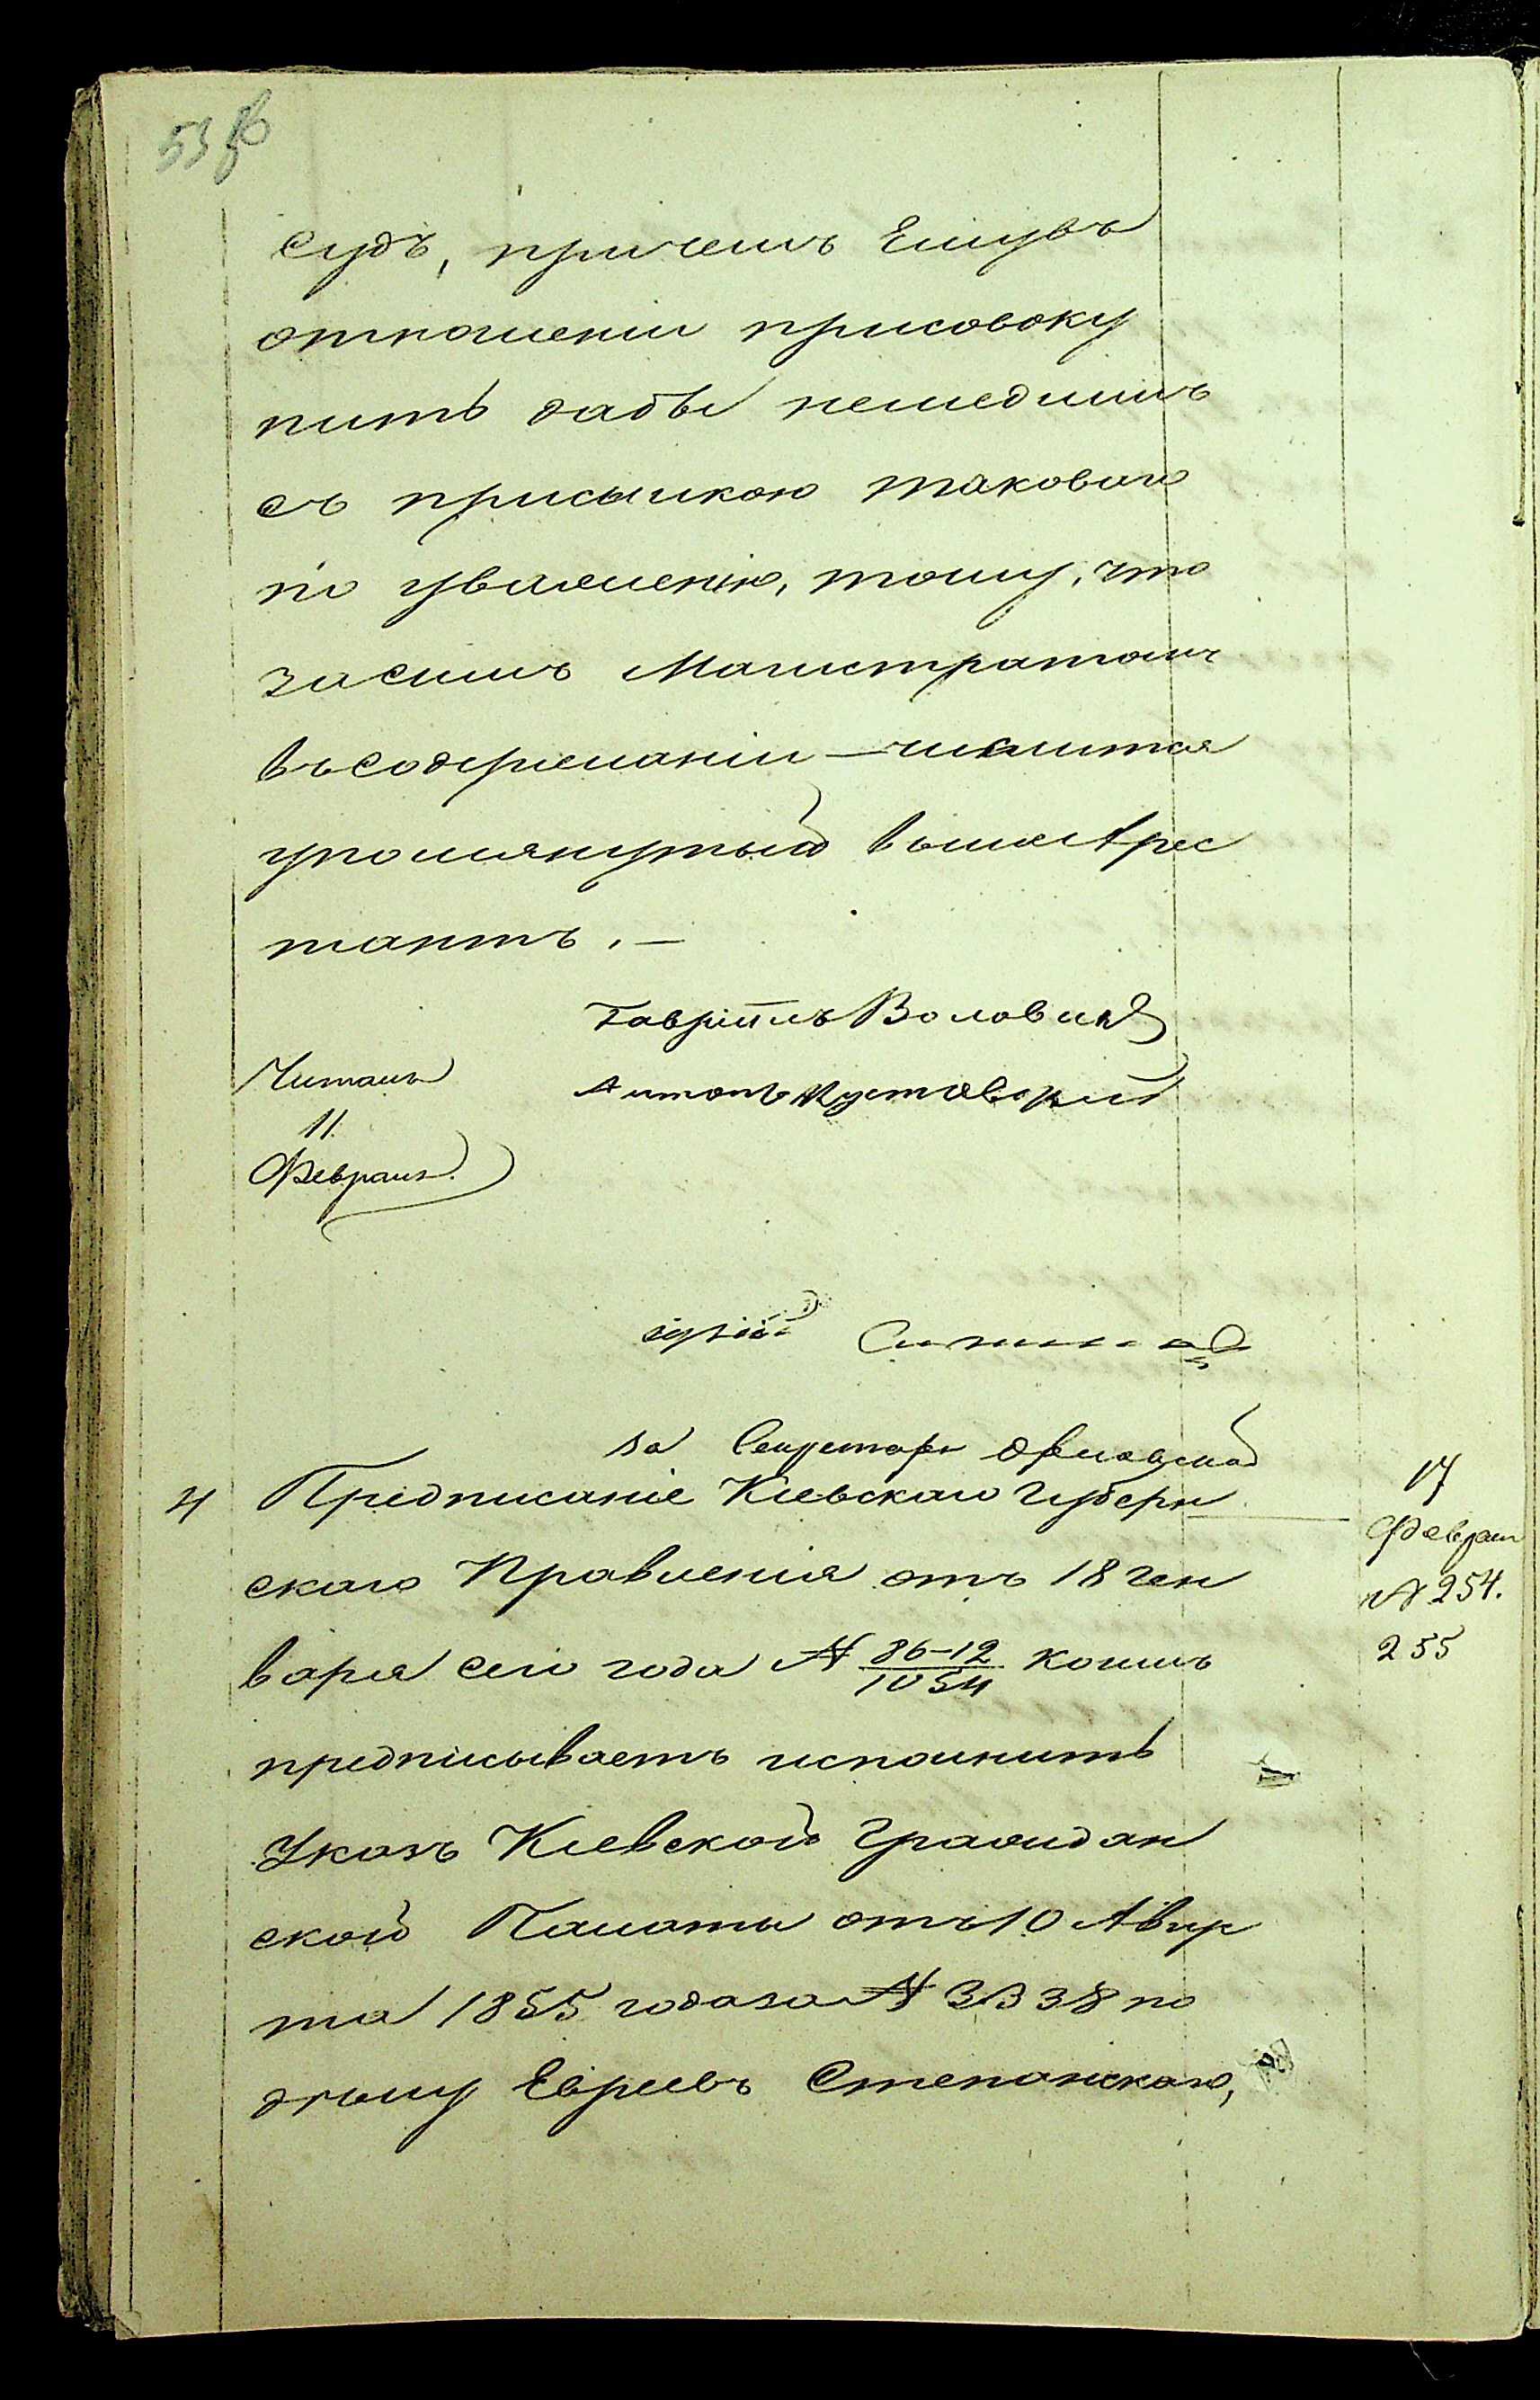 судъ, причемъ Ему въ
отношеніи присовоку
пить дабы немедлилъ
съ присылкою таковаго
по уваженію, тому, что
за симъ Магистратомъ
въ содержаніи — числится
упомянутый выше Арес
тантъ. —
Гавріилъ Воловик
Антонъ
Читалъ
11.
Февраля.
за Секретаря
4 Предписаніе Кіевскаго Губерн
скаго Правленія отъ 18 Ген
варя сего года № 86-12/1054 коимъ
предписываетъ исполнить
Указъ Кіевской Граждан
ской Палаты отъ 10 Авгу
ста 1855 года за № 3338 по
дѣлу Евреевъ Степанскаго,
17
Феврал
№ 254.
255